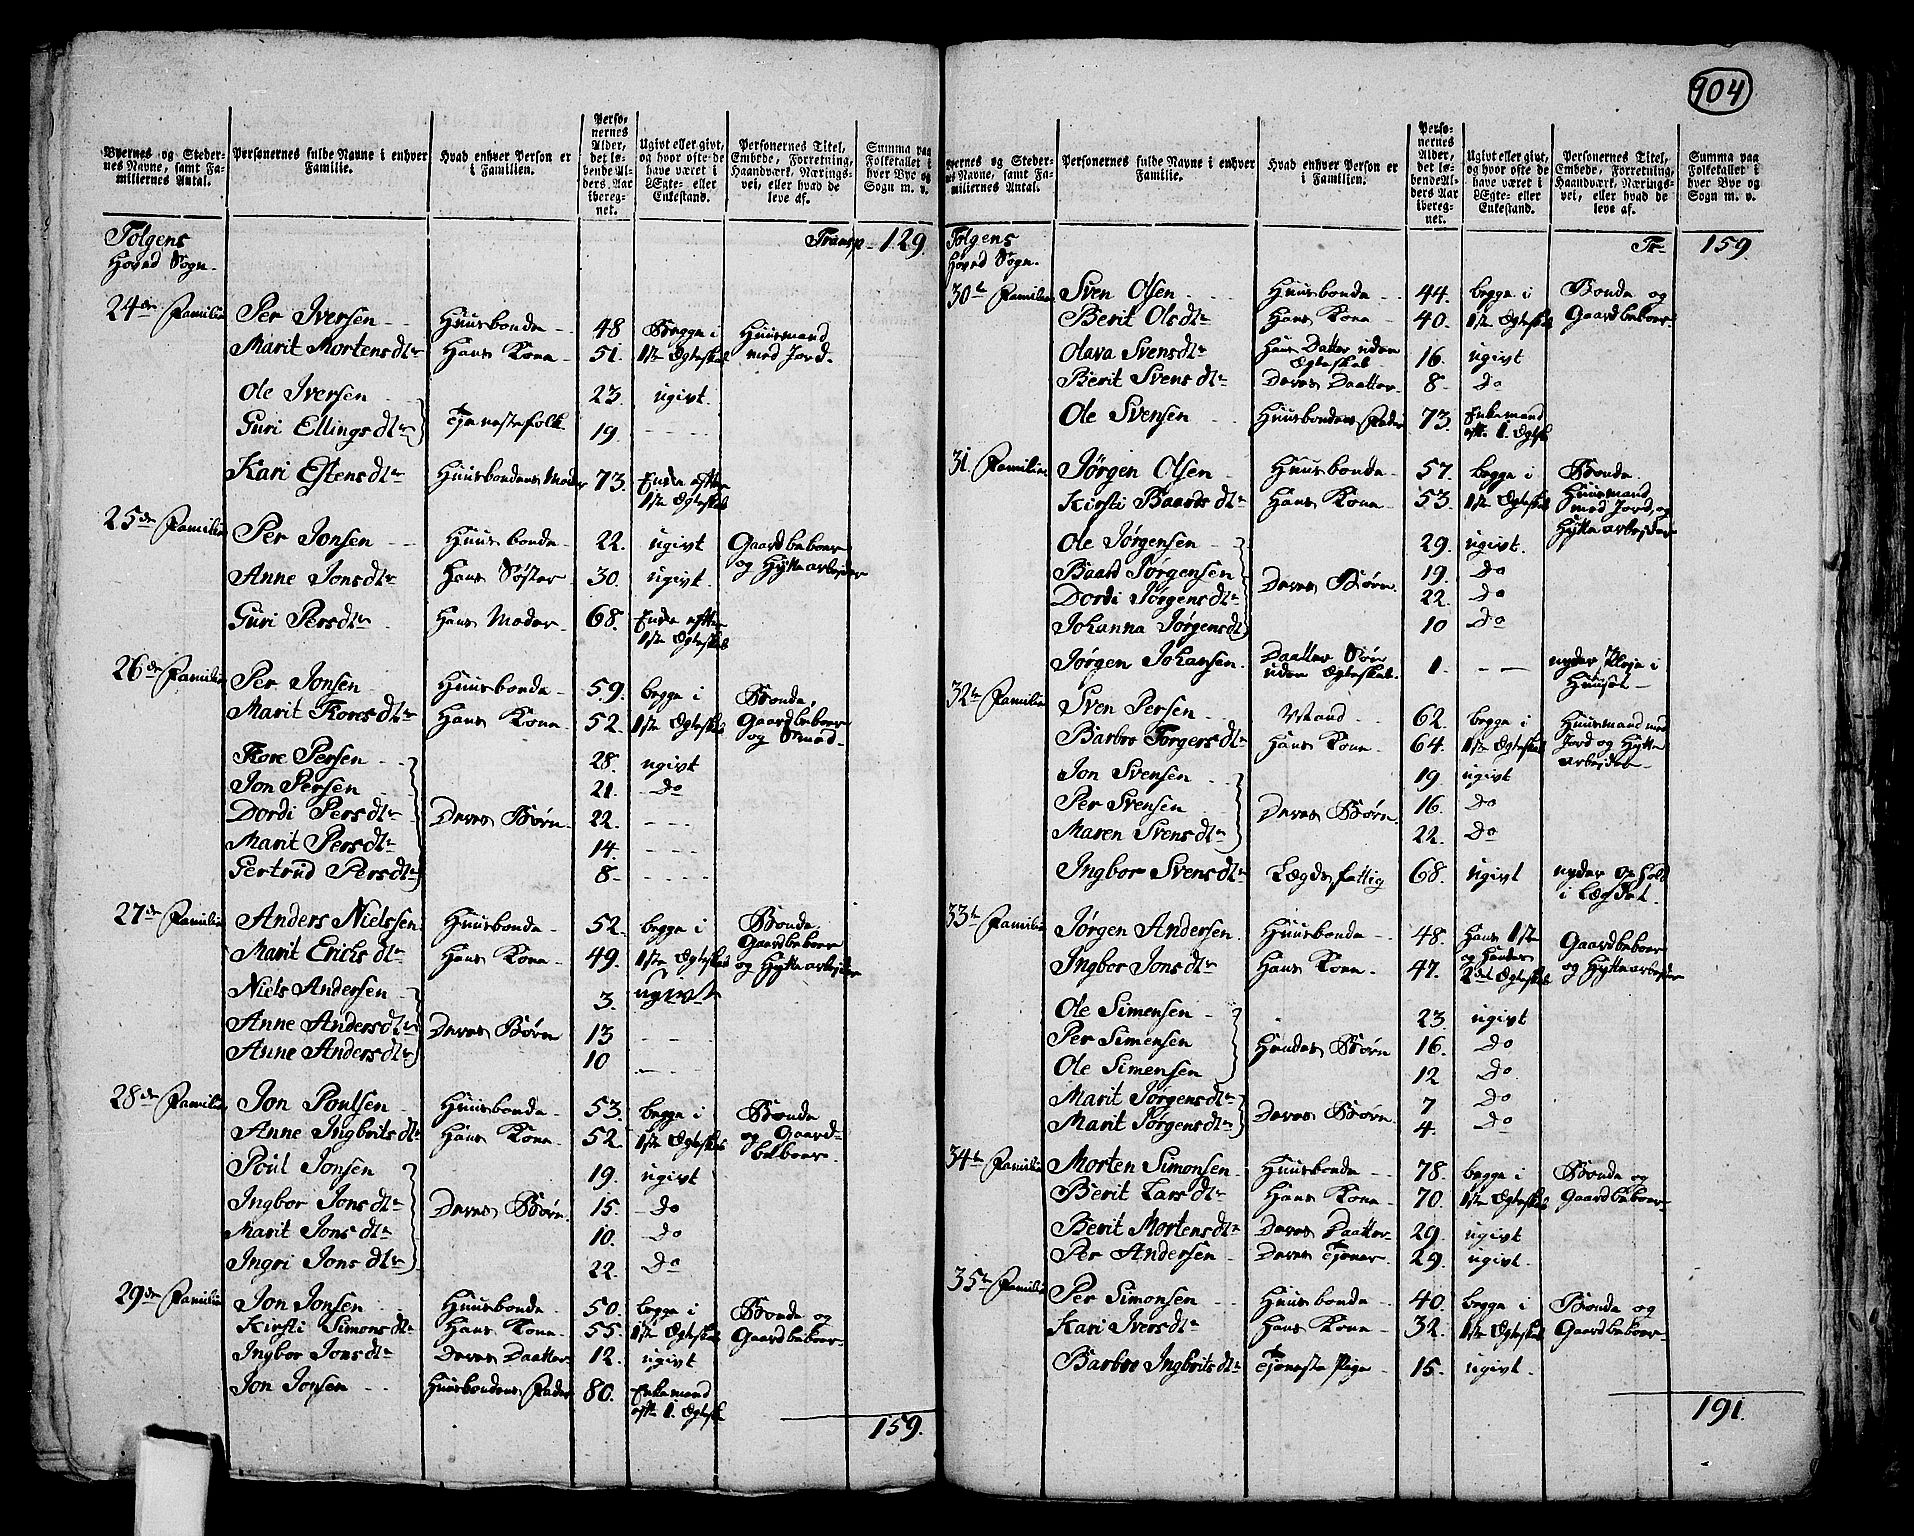 904
Byernes og Stedernes Navne, samt Familiernes Antal.
Personernes fulde Navne i enhver Familie.
Hvad enhver Person er i Familien.
Personernes Alder, det løbende Alders Aar iberegnet.
Ugivt eller givt, og hvor ofte de have været i Ægte- eller Enkestand.
Personernes Titel, Embede, Forretning, Haandværk, Næringsvei, eller hvad de leve af.
Summa paa Folketallet i hver Bye og Sogn m. v.
Tolgens Transp 129
Hoved Sogn
24de Familie Per Iversen Huusbonde 48 Begge i Huusmand
Marit Mortensdtr Hans Kone 51. 1ste Ægteskab med Jord
Ole Iversen 23. ugivt
Guri Ellingsdtr Tjenestefolk 19.
Kari Estensdtr Huusbondens Moder 73. Enke efter
1ste Ægteskab
25de Familie Per Jonsen Huusbonde 22. ugivt Gaardbeboer
Anne Jonsdtr Hans Søster 30. ugivt og Hyttearbejder
Guri Persdtr Hans Moder 68. Enke efter
1ste Ægteskab
26de Familie Per Jonsen Huusbonde 59. begge i Bonde,
Marit Toresdtr Hans Kone 52. 1ste Ægteskab Gaardbeboer
og Smed
Tore Persen 28. ugivt
Jon Persen 21. do
Dordi Persdtr Deres Børn 22.
Marit Persdtr 14.
Gertrud Persdtr 8
27de Familie Anders Nielssen Huusbonde 52. begge i Bonde,
Marit Erichsdtr Hans Kone 49. 1ste Ægteskab Gaardbeboer
og Hyttearbejder
Niels Andersen 3. ugivt
Anne Andersdtr Deres Børn 13
Anne Andersdtr 10
28de Familie Jon Poulsen Huusbonde 53. begge i Bonde
Anne Ingbritsdtr Hans Kone 52 1ste Ægteskab og Gaard-
beboer
Poul Jonsen 19. ugivt
Ingbor Jonsdtr Deres Børn 15. do
Marit Jonsdtr 10. do
Ingri Jonsdtr 22. do
29de Familie Jon Jonsen Huusbonde 50. begge i Bonde og
Kirsti Simonsdtr Hans Kone 55. 1ste Ægteskab Gaardbeboer
Ingbor Jonsdtr Deres Daatter 12. ugivt
Jon Jonsen Huusbondens Fader 80. Enkemand
efter 1. Ægtesk.
159.
Byernes og Stedernes Navne, samt Familiernes Antal.
Personernes fulde Navne i enhver Familie.
Hvad enhver Person er i Familien.
Personernes Alder, det løbende Alders Aar iberegnet.
Ugivt eller givt, og hvor ofte de have været i Ægte- eller Enkestand.
Personernes Titel, Embede, Forretning, Haandværk, Næringsvei, eller hvad de leve af.
Summa paa Folketallet i hver Bye og Sogn m. v.
Tolgens Tr 159
Hoved Sogn
30te Familie Sven Olsen Huusbonde 44. begge i Bonde og
Berit Olsdtr Hans Kone 40. 1ste Ægteskab Gaardbeboer
Olava Svensdtr Hans Datter uden Ægteskab 16. ugivt
Berit Svensdtr Deres Daatter 8. do
Ole Svensen Huusbondens Fader 73. Enkemand
efter 1. Ægtesk
31. Familie Jørgen Olsen Huusbonde 57. begge i Bonde
Kirsti Baardsdtr Hans Kone 53. 1ste Ægteskab Huusmand
med Jord, og
Hyttearbejder
Ole Jørgensen 29. ugivt.
Baard Jørgensen Deres Børn 19. do
Dordi Jørgensdtr 22. do
Johanna Jørgensdtr 10 do
Jørgen Johansen Daatter Søn uden Ægteskab 1. nyder Pleje i
Huuset
32te Familie Sven Persen Mand 62. begge i Huusmand med
Barbro Torgersdtr Hans Kone 64. 1ste Ægteskab Jord og Hytte
arbejder
Jon Svensen 19 ugivt
Per Svensen Deres Børn 16. do
Maren Svensdtr 22. do
Ingbor Svensdtr Lægdsfattig 68. ugivt nyder Ophold
i Lægdet.
33te Familie Jørgen Andersen Huusbonde 48. Hans 1ste Gaardbeboer
og Hendes
Ingbor Jonsdtr Hans Kone 47. 2det Ægteskab og Hyttearbejder
Ole Simensen 23. ugivt
Per Simensen Hendes Børn 16. do
Ole Simensen 12 do
Marit Jørgensdtr Deres Børn 7 do
Marit Jørgensdtr 4. do
34te Familie Morten Simonsen Huusbonde 78. begge i Bonde og
Berit Larsdtr Hans Kone 70. 1ste Ægteskab Gaardbeboer
Berit Mortensdtr Deres Daatter 29. ugivt
Per Andersen Deres Tjener 29. ugivt.
35te Familie Per Simonsen Huusbonde 40. begge i Bonde og
Kari Iversdtr Hans Kone 32. 1ste Ægteskab Gaardbeboer
Barbro Ingbritsdtr Tjeneste Pige 15. ugivt.
191.